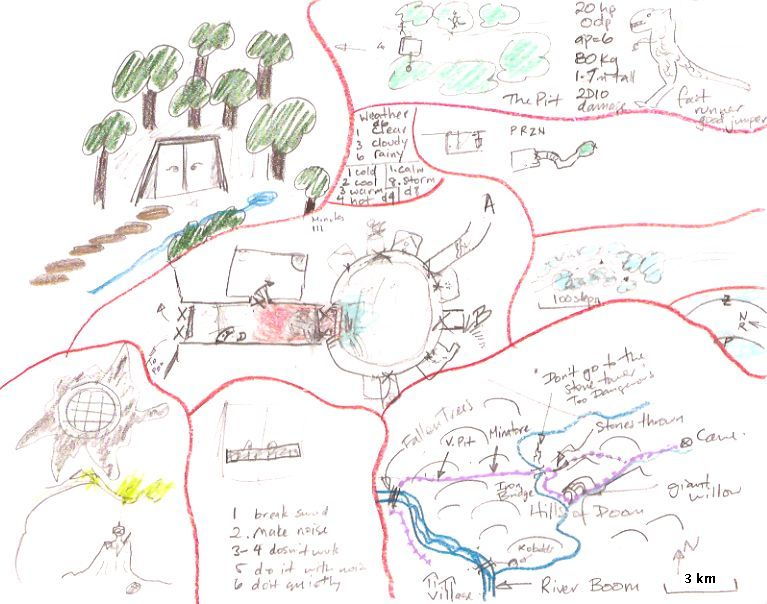 20 hp
0 dp
ap=6
80 kg
1.7m tall
2D10
damage
The Pit
fast
runner
good jumper
Weather
d6
1 clear
3 cloudy
6 rainy
1 cold
2 cool
3 warm
4 hot d4
1. calm
8. storm
d8
PRZN
Minutes
III
A
B
X
X
D
100 steps
Z
N
R
P
1 break sword
2. make noise
3-4 doesn't work
5 do it with noise
6 do it quietly
"Don't go to the
stone tower"
Too Dangerous
Fallen Trees
V. Pit
Minatore
Stones thrown
Cave.
Iron
Bridge
giant
willow
Hills of Doom
Kobolds
N
Village
River Boom
3 km